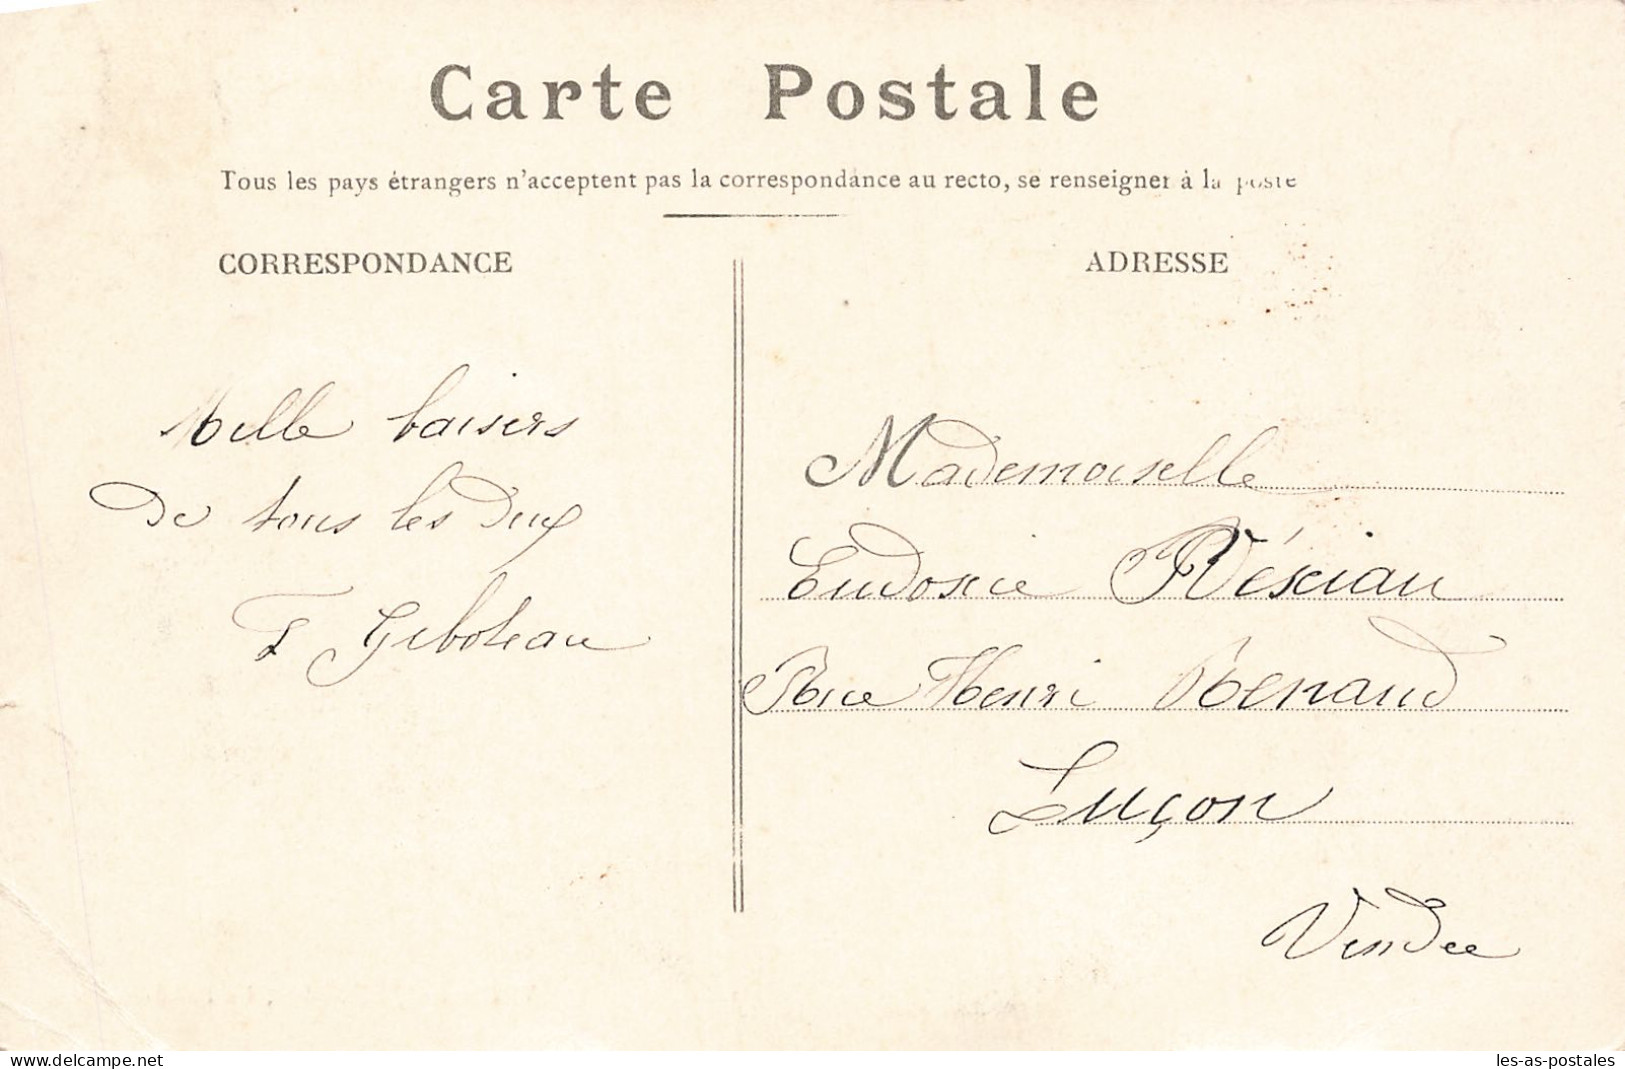 Carte Postale
Tous les pays étrangers n'acceptent pas la correspondance au recto, se renseigner à la poste
CORRESPONDANCE
Mille baisers
De tous les Deux
F Giboteau
ADRESSE
Mademoiselle
Eudoxie
Rue Henri Renaud
Luçon
Vendee
www.delcampe.net
les-as-postales